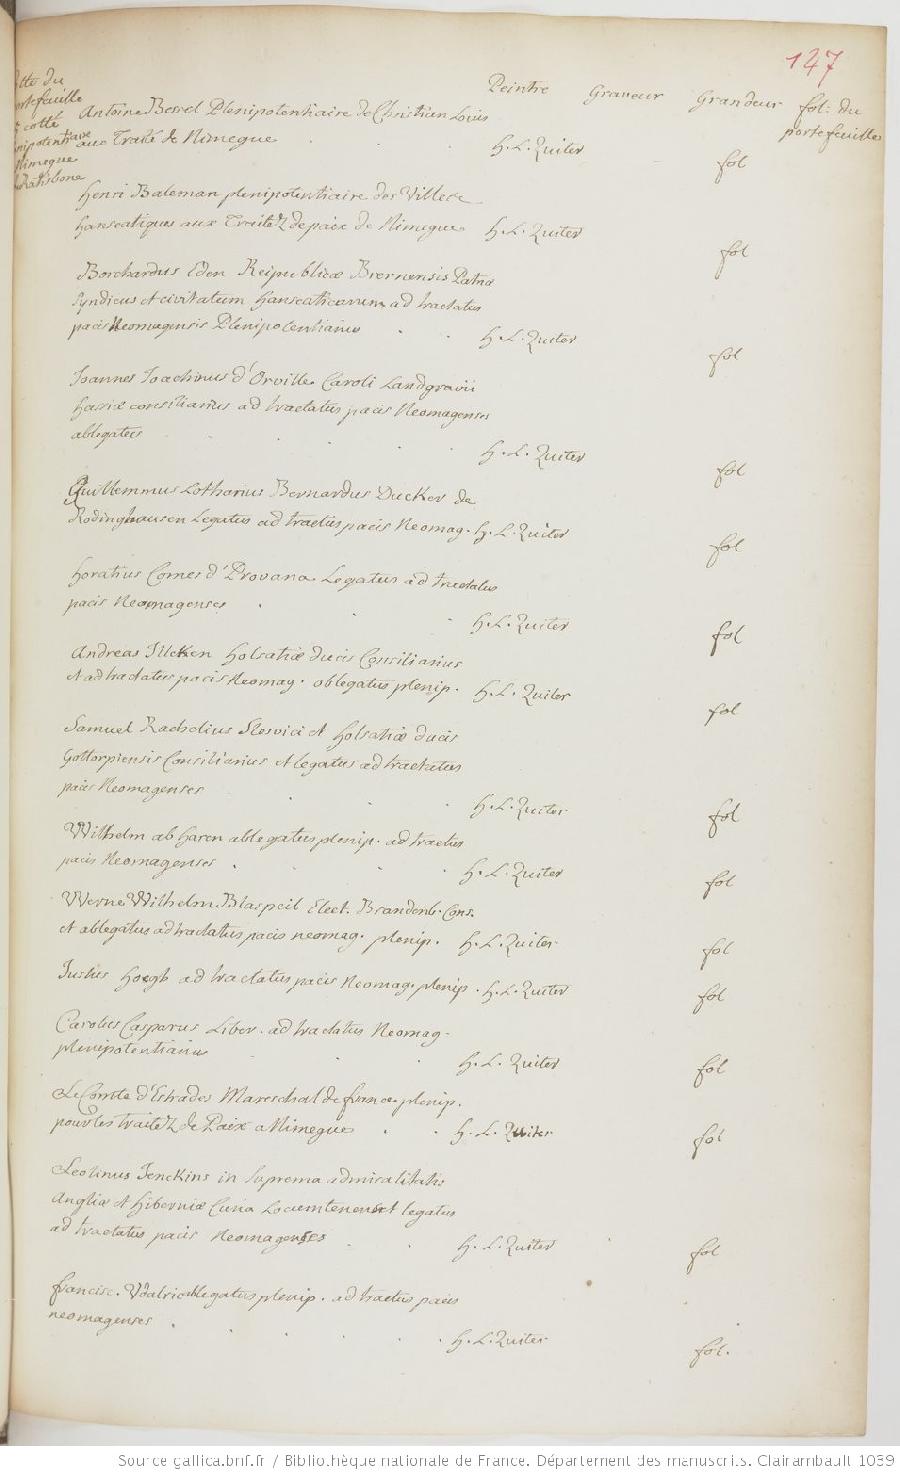 147
Peintre Graveur Grandeur fol: du
portefeuille
cotte du
portefeuille
cotté
plenipotentiaire
Nimegue
Ratisbone
Antoine Bessel Plenipotentiaire de Christian Louis
aux Traité de Nimegue H. L. Quiter fol
Henri Bateman plenipotentiaire des Villes
hanseatiques aux Traitez de paix de Nimegue H. L. Quiter fol
Borchardus Eden Reipublicæ Bremensis Patriæ
Syndicus et civitatum hanseaticarum ad tractatus
pacis Neomagensis Plenipotentiarius H. L. Quiter fol
Joannes Joachimus d'Orville Caroli Landgravii
hassiæ consiliarius ad tractatus pacis Neomagenses
ablegatus H. L. Quiter fol
Guillemmus Lotharius Bernardus Ducker de
Rodinghausen Legatus ad tractus pacis Neomag. H. L. Quiter fol
horatius Comes d'Provana Legatus ad tractatus
pacis Neomagenses H. L. Quiter fol
Andreas Ilcken holsatiæ ducis Consiliarius
et ad tractatus pacis Neomag. oblegatus plenip. H. L. Quiter fol
Samuel Rachelius Slesvici et holsatiæ ducis
Gottorpiensis Consiliarius et legatus ad tractatus
pacis Neomagenses H. L. Quiter fol
Wilhelm ab haren ablegatus plenip. ad tractus
pacis Neomagenses H. L. Quiter fol
Werne Wilhelm. Blaspeil Elect. Brandenb. Cons.
et ablegatus ad tractatus pacis neomag. plenip. H. L. Quiter fol
Justus hoegh ad tractatus pacis Neomag. plenip. H. L. Quiter fol
Carolus Casparus Liber. ad tractatus Neomag.
plenipotentiarius H. L. Quiter fol
Le Comte d'Estrades Mareschal de france plenip.
pour les traitez de Paix a Nimegue H. L. Quiter fol
Leolinus Jenckins in suprema admiralitatis
Angliæ et hiberniæ Curia Locumtenens et legatus
ad tractatus pacis Neomagenses H. L. Quiter fol
francisc. ablegatus plenip. ad tractus pacis
neomagenses H. L. Quiter fol.
Source gallica.bnf.fr / Bibliothèque nationale de France. Département des manuscrits. Clairambault 1039